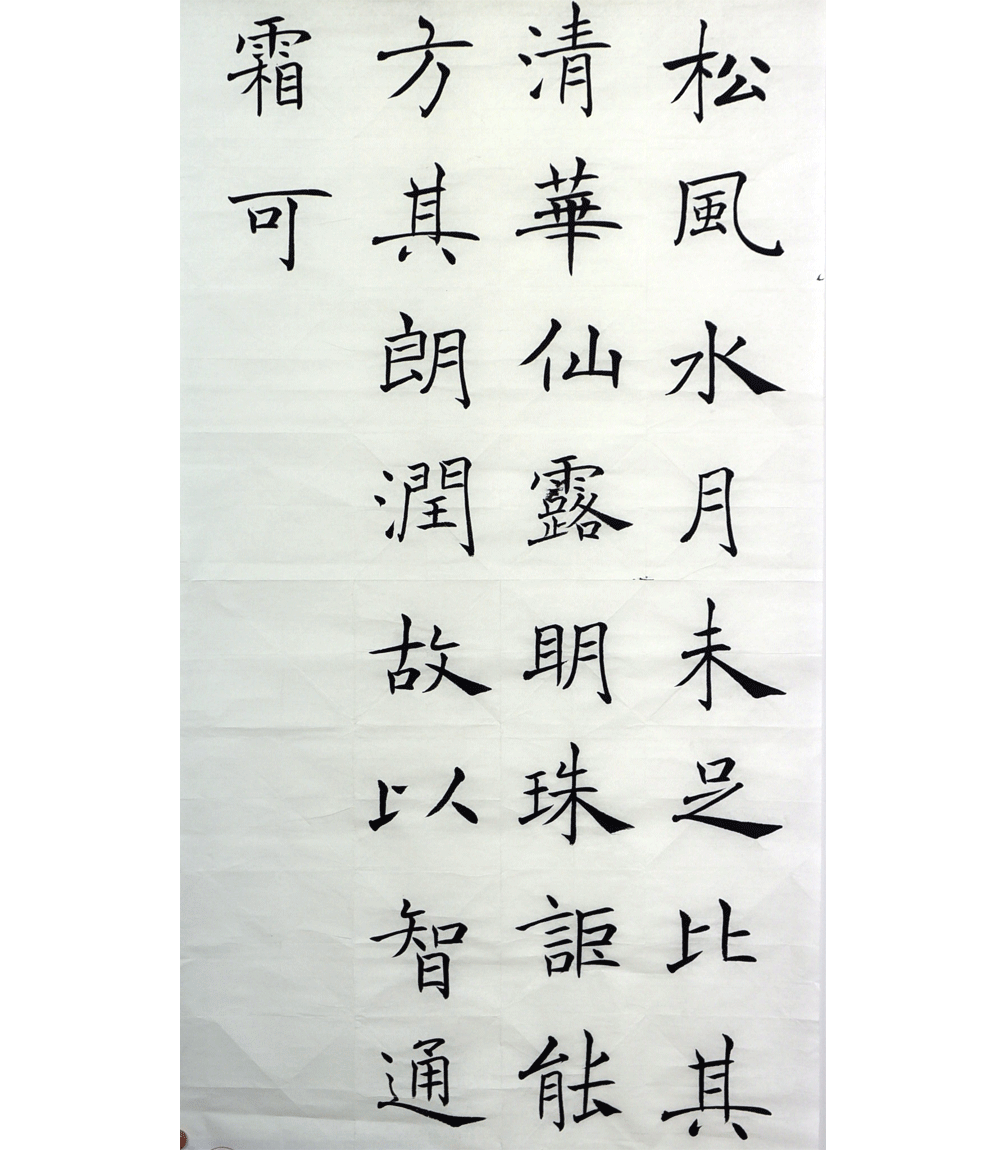 松風水月未足比其
清華仙露明珠詎能
方其朗潤故以智通
霜可